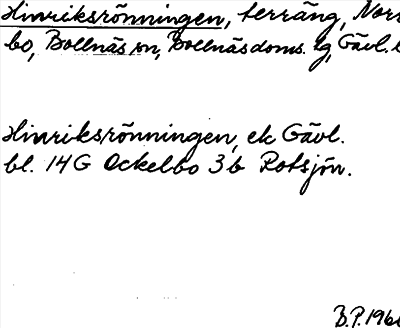 Hinriksrönningen, terräng, Nors
bo, Bollnäs sn, Bollnäs doms. lg, Gävl. l
Hinriksrönningen, ek Gävl.
bl. 14 G Ockelbo 3 b Rotsjön.
B.P. 196